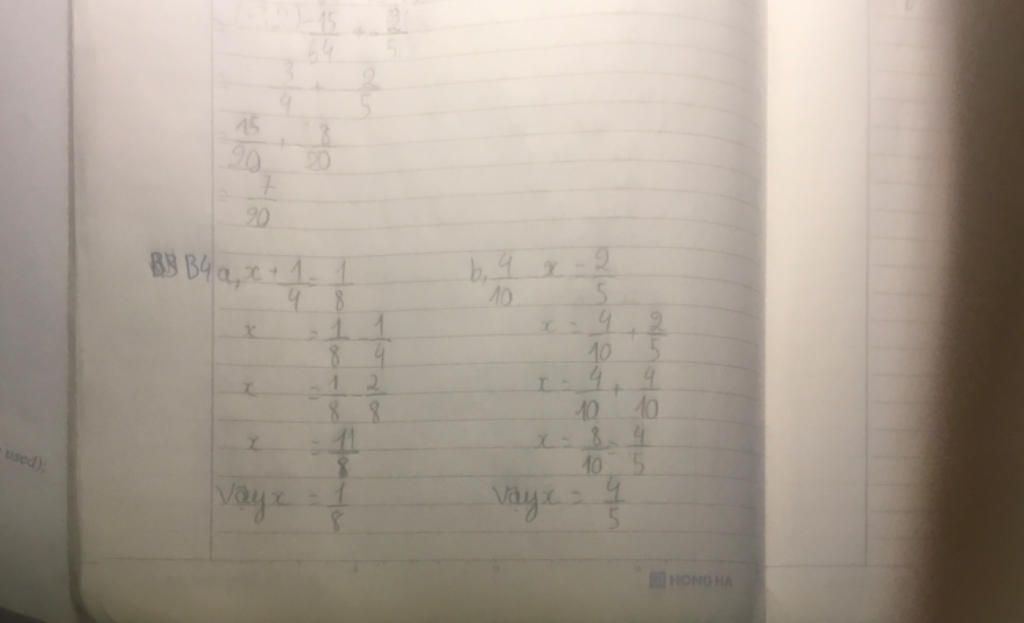 -15/64 + 2/5
3/4 + 2/5
15/20 + 8/20
= 7/20
B4 a, x + 1/4 = 1/8
x = 1/8 - 1/4
x = 1/8 - 2/8
x = 11/8
Vậy x = 1/8
b, 4/10 x = 2/5
x = 4/10 + 2/5
x = 4/10 + 4/10
x = 8/10 = 4/5
Vậy x = 4/5
used);
HONG HA